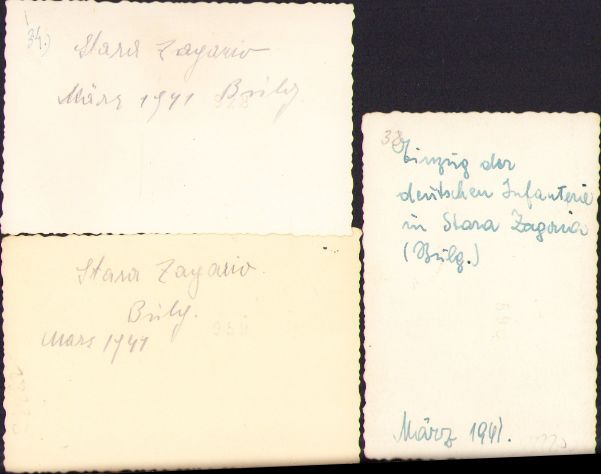 34.)
Stara Zagario
März 1941 Bulg
Stara Zagario.
Bulg.
März 1941
38
Einzug der
deutschen Infanterie
in Stara Zagoria
(Bulg.)
März 1941.